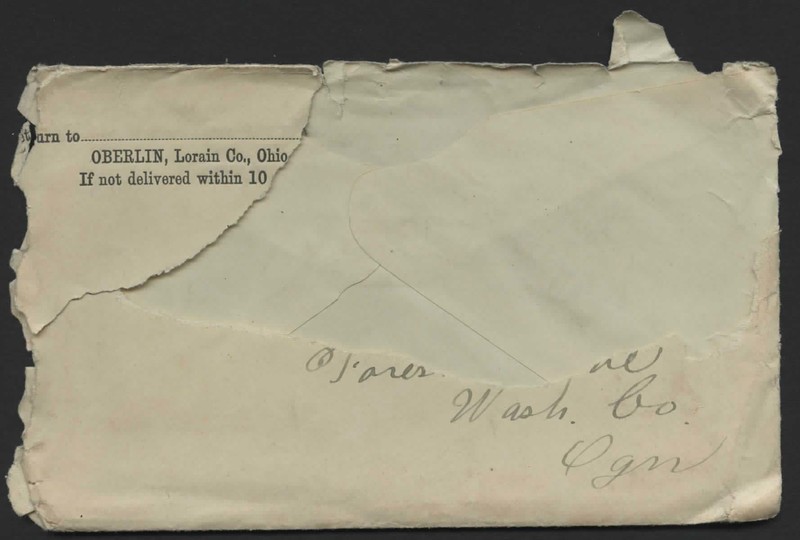 turn to
OBERLIN, Lorain Co., Ohio
If not delivered within 10
Fores ve
Wash. Co.
Ogn